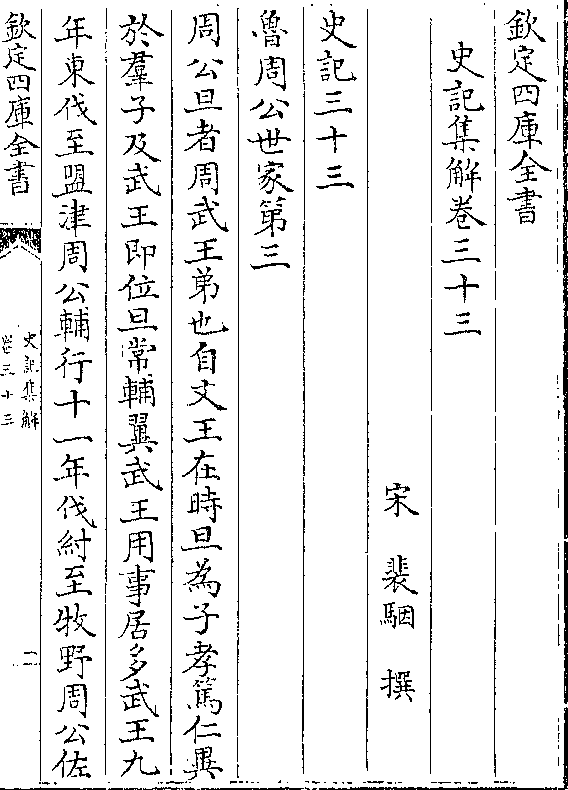 欽定四庫全書
史記集解卷三十三
宋　裴駰　撰
史記三十三
魯周公世家第三
周公旦者周武王弟也自文王在時旦為子孝篤仁異
於羣子及武王即位旦常輔翼武王用事居多武王九
年東伐至盟津周公輔行十一年伐紂至牧野周公佐
欽定四庫全書
史記集解
卷三十三
一